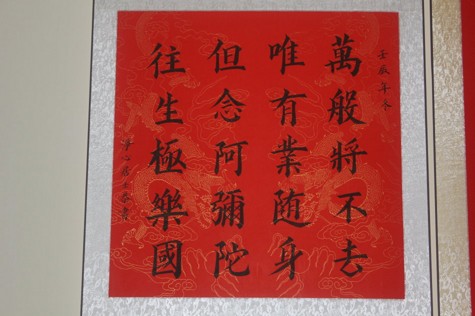 壬辰年冬
萬般將不去
唯有業随身
但念阿彌陀
往生極樂國